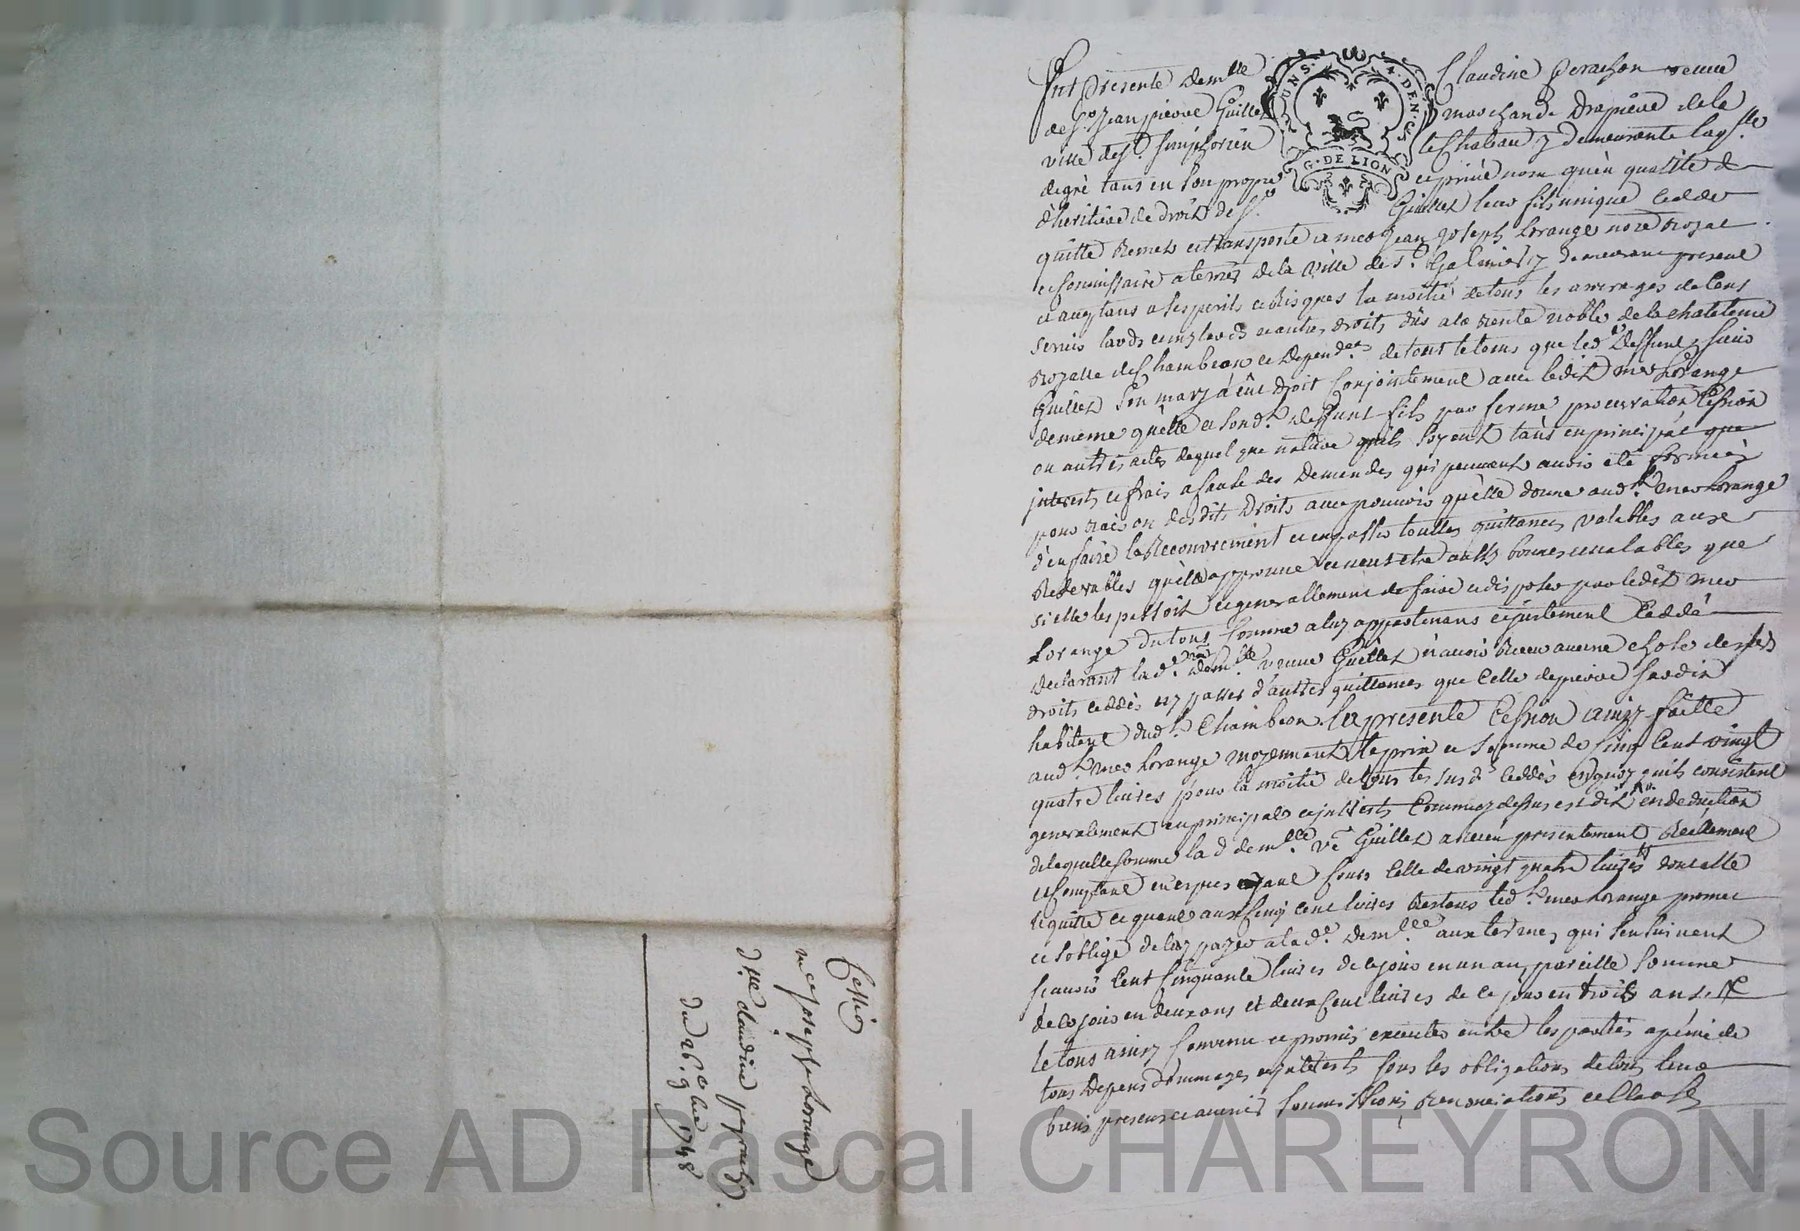 Fut presente dem.lle Claudine perachon veuve
de s.r Jean pierre Guillet marchande drapiere de la
ville de s.t simphorien le chateau y demeurante laq.lle
de gré tant en son propre et privé nom qu'en qualité de
d'heritiere de droit de s.r Guillet leur fils unique cedde
quitte remet et transporte a me Jean Joseph Lorange no.re Royal
et Commissaire a terrier de la ville de s.t Galmier y demeurant present
et acceptant a ses perils et risques la moitié de tous les arrerages de cens
servis lauds et milauds et autres droits dûs a la rente noble de la chatelenie
Royalle de Chambeon et dépend.ces de tout le tems que led. deffunt sieur
Guillet son mary a eû droit conjointement avec ledit me Lorange
de meme qu'elle et sond. deffunt fils par ferme procuration Cession
ou autres actes de quel que nature qu'ils soyent tant en principal que
interests et frais a faute des demandes qui peuvent avoir été formées
pour raison desdits droits avec pouvoir qu'elle donne aud. me Lorange
d'en faire le Recouvrement et en passer touttes quittances valables aux
Redevables qu'elle approuve et veut etre aussy bonnes et valables que
si elle les passoit et generallement de faire et disposer par ledit me
Lorange du tout comme a luy appartenant et justement Ceddé
declarant lad. dem.lle veuve Guillet n'avoir Receu aucune chose desd.
droits ceddés ny passer d'autres quittances que Celle de pierre Jardin
habitant dud. Chambeon La presente Cession ainsy faitte
aud. me Lorange moyennant le prix et somme de Cinq Cent vingt
quatre livres pour la moitié de tous les susd. ceddés en quoy qu'ils consistent
generalement en principal et interests Comme cy dessus est dit en deduction
de laquelle somme la d. dem.lle v.e Guillet a receu presentement Réelement
et Comptant en especes ayant Cours Celle de vingt quatre livres dont elle
le quitte et quant aux Cinq cent livres Restans led. me Lorange promet
et s'oblige de les payer a lad. dem.lle aux termes qui s'ensuivent
scavoir Cent Cinquante livres de ce jour en un an, pareille somme
de ce jour en deux ans et deux Cent livres de ce jour en trois ans
le tout ainsy Convenu et promis executer entre les parties a peine de
tous depens dommages et interests sous les obligations de tous leurs
biens presens et avenir soumissions Renonciations et Clauses
G. DE LION
Cession
me joseph Lorange
d.lle claudine perachon
du 26. 9.bre 1748
Source AD Pascal CHAREYRON